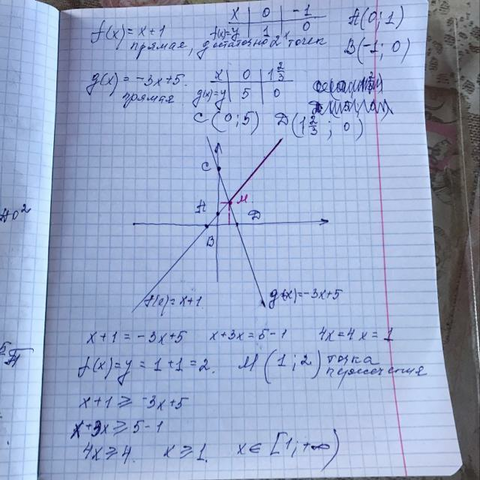 f(x) = x+1
x | 0 | -1
f(x)=y | 1 | 0
A(0; 1)
прямая, достаточно 2х точек
B(-1; 0)
g(x) = -3x+5.
x | 0 | 1 2/3
прямая
g(x)=y | 5 | 0
C(0; 5) D(1 2/3; 0)
C
M
A
D
B
f(x)=x+1
g(x)=-3x+5
x+1 = -3x+5 x+3x=5-1 4x=4 x=1
f(x)=y = 1+1=2. M(1; 2) точка
пересечения
x+1 ⩾ -3x+5
x+3x ⩾ 5-1
4x ⩾ 4. x ⩾ 1. x ∈ [1; +∞)